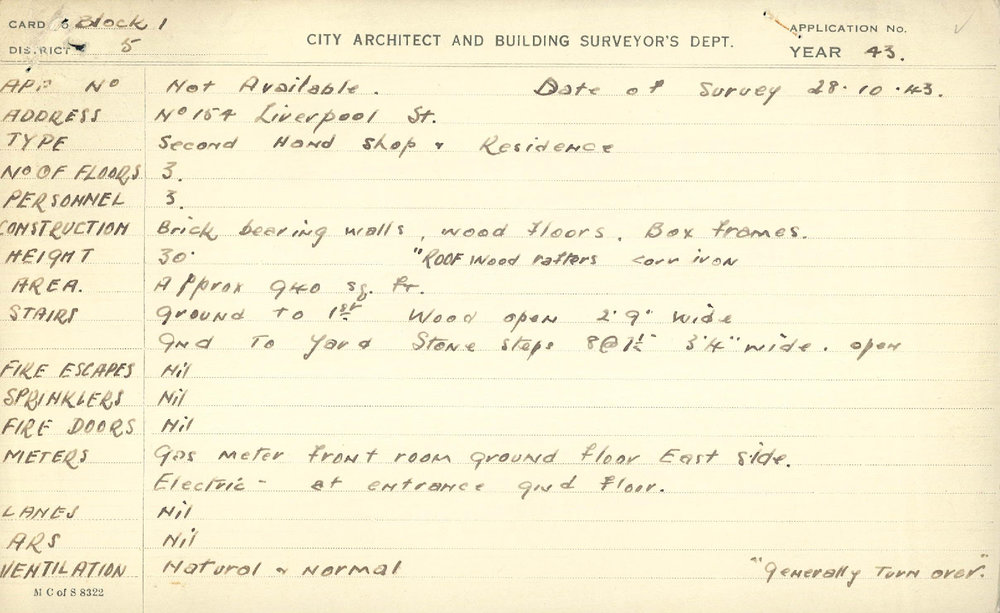 CARD 6 Block 1
APPLICATION No.
DISTRICT 5
CITY ARCHITECT AND BUILDING SURVEYOR'S DEPT.
YEAR 43.
APP No Not Available. Date of Survey 28.10.43.
ADDRESS No 154 Liverpool St.
TYPE Second Hand Shop & Residence
No OF FLOORS 3.
PERSONNEL 3.
CONSTRUCTION Brick bearing walls, wood floors. Box frames.
HEIGHT 30' "ROOF Wood rafters corr iron
AREA. Approx 940 sq. ft.
STAIRS ground to 1st Wood open 2'9" wide
gnd To Yard Stone steps 8@ 3'4" wide. open
FIRE ESCAPES Nil
SPRINKLERS Nil
FIRE DOORS Nil
METERS Gas meter front room ground floor East side.
Electric - at entrance gnd floor.
LANES Nil
ARS Nil
VENTILATION Natural & normal "Generally Turn over."
M C of S 8322